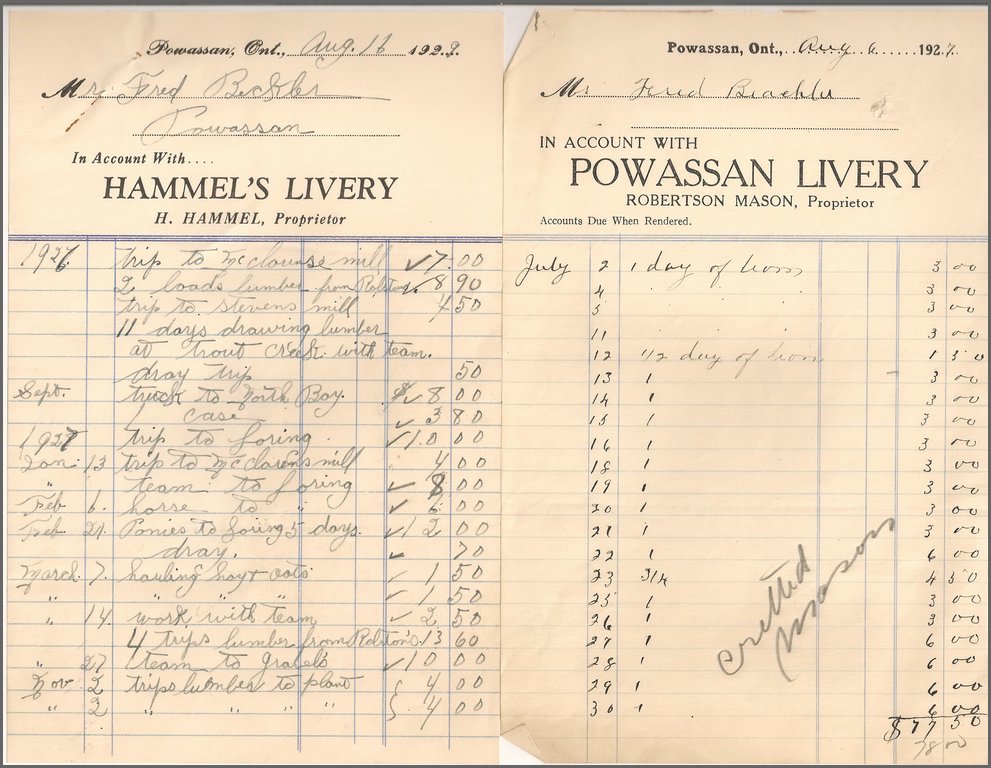 Powassan, Ont., Aug. 16 1929.
Mr. Fred
Powassan
In Account With....
HAMMEL'S LIVERY
H. HAMMEL, Proprietor
1926 trip to mill ✓ 7.00
2 loads lumber from Rolstons ✓ 8 90
trip to stevens mill 4 50
11 days drawing lumber
at trout creek with team.
dray trip 50
Sept. truck to North Bay. $ ✓ 8 00
1 case ✓ 3 80
1927 trip to Loring. ✓ 10 00
Jan. 13 trip to McClarens mill 4 00
" team to Loring ✓ 8 00
Feb 6. horse to " ✓ 6 00
Feb 21. Ponies to Loring 5 days. ✓ 12 00
dray. ✓ 70
March 7. hauling hay + oats ✓ 1 50
" " " " ✓ 1 50
" 14. work with team ✓ 2 50
4 trips lumber from Rolston's 13 60
" 27 team to ✓ 10 00
Nov. 2 trips lumber to plant 4 00
" 2 " " " " 4 00
Powassan, Ont., Aug 6 1927.
Mr. Fred
IN ACCOUNT WITH
POWASSAN LIVERY
ROBERTSON MASON, Proprietor
Accounts Due When Rendered.
July 2 1 day of 3 00
4 " " 3 00
5 3 00
11 " " 3 00
12 1/2 day of 1 50
13 1 3 00
14 1 3 00
15 1 3 00
16 1 3 00
18 1 3 00
19 1 3 00
20 1 3 00
21 1 3 00
22 1 6 00
23 3/4 4 50
25 1 3 00
26 1 3 00
27 1 6 00
28 1 6 00
29 1 6 00
30 1 6 00
$77 50
78 00
Mason